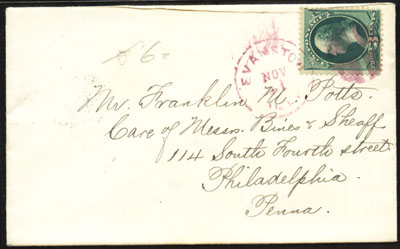 86=
EVANSTO
NOV
Mr. Franklin M. Potts.
Care of Messrs. Bines & Sheaff
114 South Fourth street
Philadelphia.
Penna.